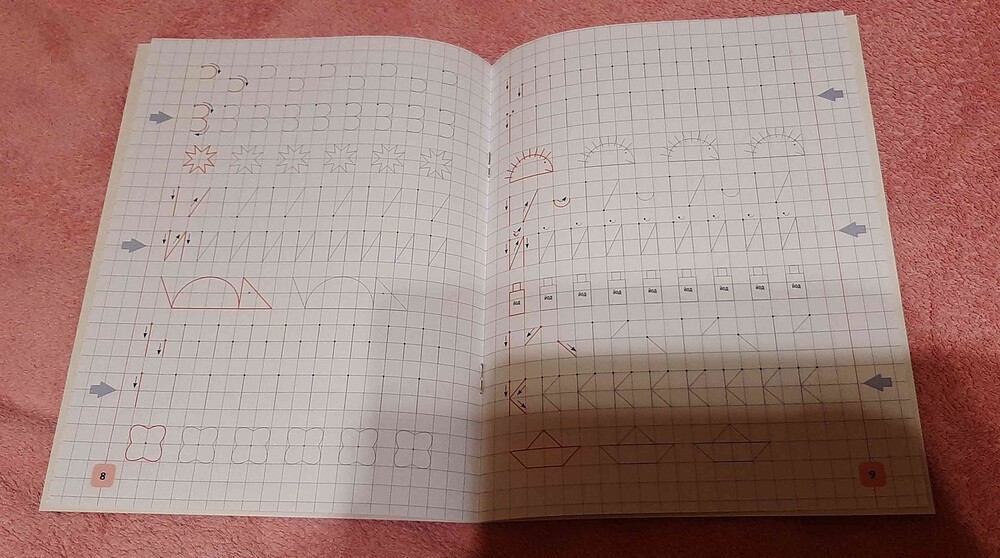 З З З З З З З З З
И И И И И И И И И
8
Й Й Й Й Й Й Й Й Й
йод йод йод йод йод йод йод йод йод
К К К К К К К К К
9